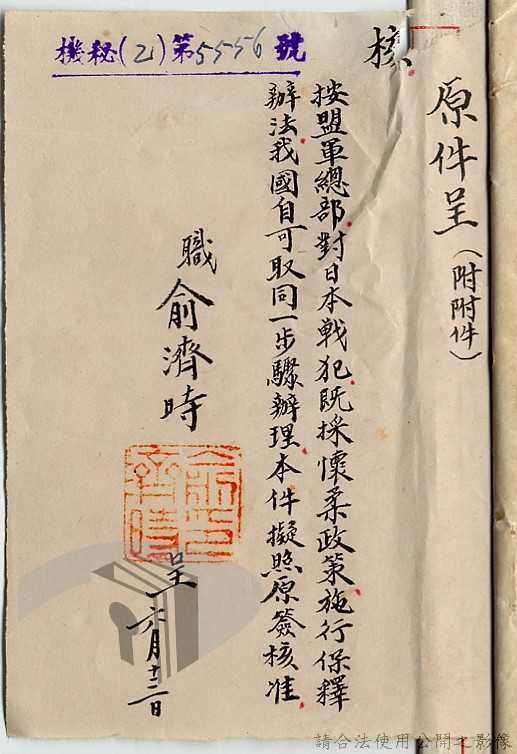 原件呈(附附件)
核
按盟軍總部對日本戰犯既採懷柔政策施行保釋
辦法我國自可取同一步驟辦理本件擬照原簽核准
職俞濟時
俞濟時印
呈
六月十二日
機秘(乙)第5556號
請合法使用公開之影像